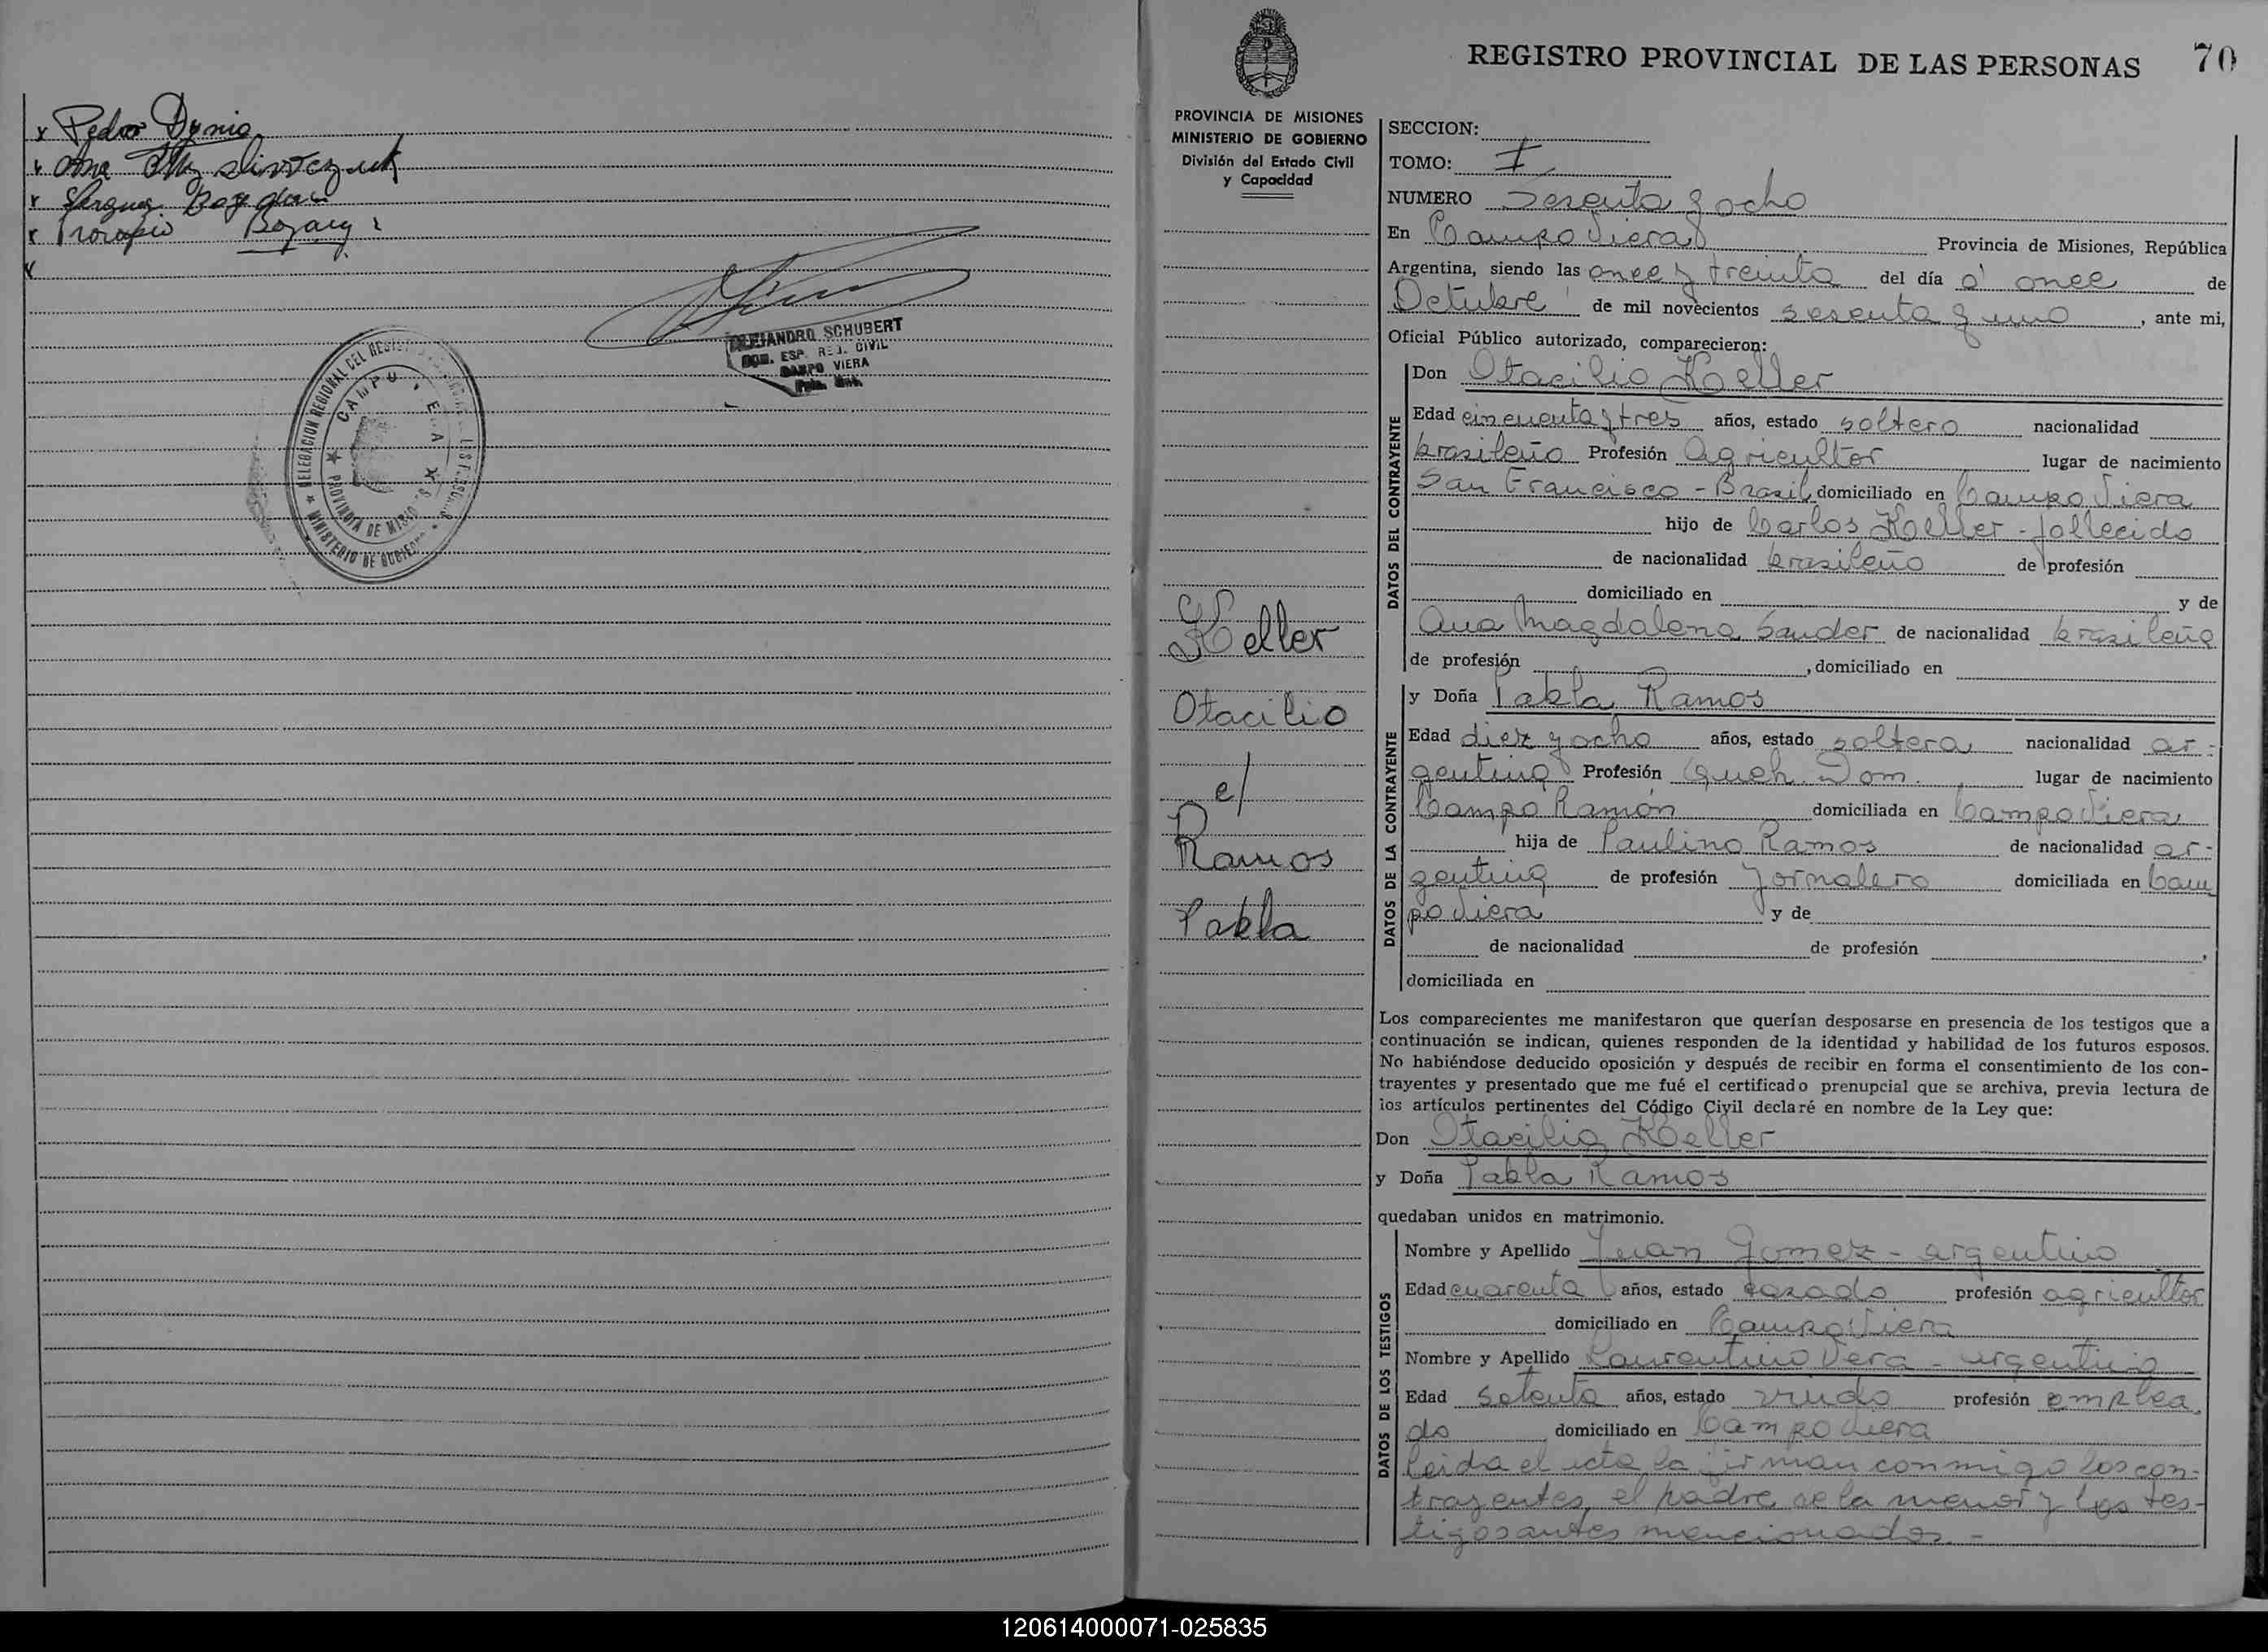 x Pedro Dynia
x Ana
x Bogdan
x Procopio
x
ALEJANDRO SCHUBERT
ESP. REJ. CIVIL
CAMPO VIERA
DELEGACION REGIONAL DEL REGISTRO
MINISTERIO DE GOBIERNO
PROVINCIA DE
PROVINCIA DE MISIONES
MINISTERIO DE GOBIERNO
División del Estado Civil
y Capacidad
Keller
Otacilio
c/
Ramos
Pabla
REGISTRO PROVINCIAL DE LAS PERSONAS 70
SECCION:
TOMO: I
NUMERO Sesenta y ocho
En Campo Viera Provincia de Misiones, República
Argentina, siendo las once y treinta del día once de
Octubre de mil novecientos sesenta y uno, ante mi,
Oficial Público autorizado, comparecieron:
DATOS DEL CONTRAYENTE
Don Otacilio Keller
Edad cincuenta y tres años, estado soltero nacionalidad
brasileño Profesión Agricultor lugar de nacimiento
San Francisco - Brasil domiciliado en Campo Viera
hijo de Carlos Keller - fallecido
de nacionalidad brasileño de profesión
domiciliado en y de
Ana Magdalena Sander de nacionalidad brasileña
de profesión , domiciliado en
DATOS DE LA CONTRAYENTE
y Doña Pabla Ramos
Edad diez y ocho años, estado soltera nacionalidad ar-
gentina Profesión Queh. Dom. lugar de nacimiento
Campo Ramón domiciliada en Campo Viera
hija de Paulino Ramos de nacionalidad ar-
gentina de profesión Jornalero domiciliada en Cam
po Viera y de
de nacionalidad de profesión ,
domiciliada en
Los comparecientes me manifestaron que querían desposarse en presencia de los testigos que a
continuación se indican, quienes responden de la identidad y habilidad de los futuros esposos.
No habiéndose deducido oposición y después de recibir en forma el consentimiento de los con-
trayentes y presentado que me fué el certificado prenupcial que se archiva, previa lectura de
los artículos pertinentes del Código Civil declaré en nombre de la Ley que:
Don Otacilio Keller
y Doña Pabla Ramos
quedaban unidos en matrimonio.
DATOS DE LOS TESTIGOS
Nombre y Apellido Juan Gomez - argentino
Edad cuarenta años, estado casado profesión agricultor
domiciliado en Campo Viera
Nombre y Apellido Laurentino Vera - argentino
Edad setenta años, estado viudo profesión emplea
do domiciliado en Campo Viera
Leida el acta la firman conmigo los con-
trayentes, el padre de la menor y los tes-
tigos antes mencionados. -
120614000071-025835